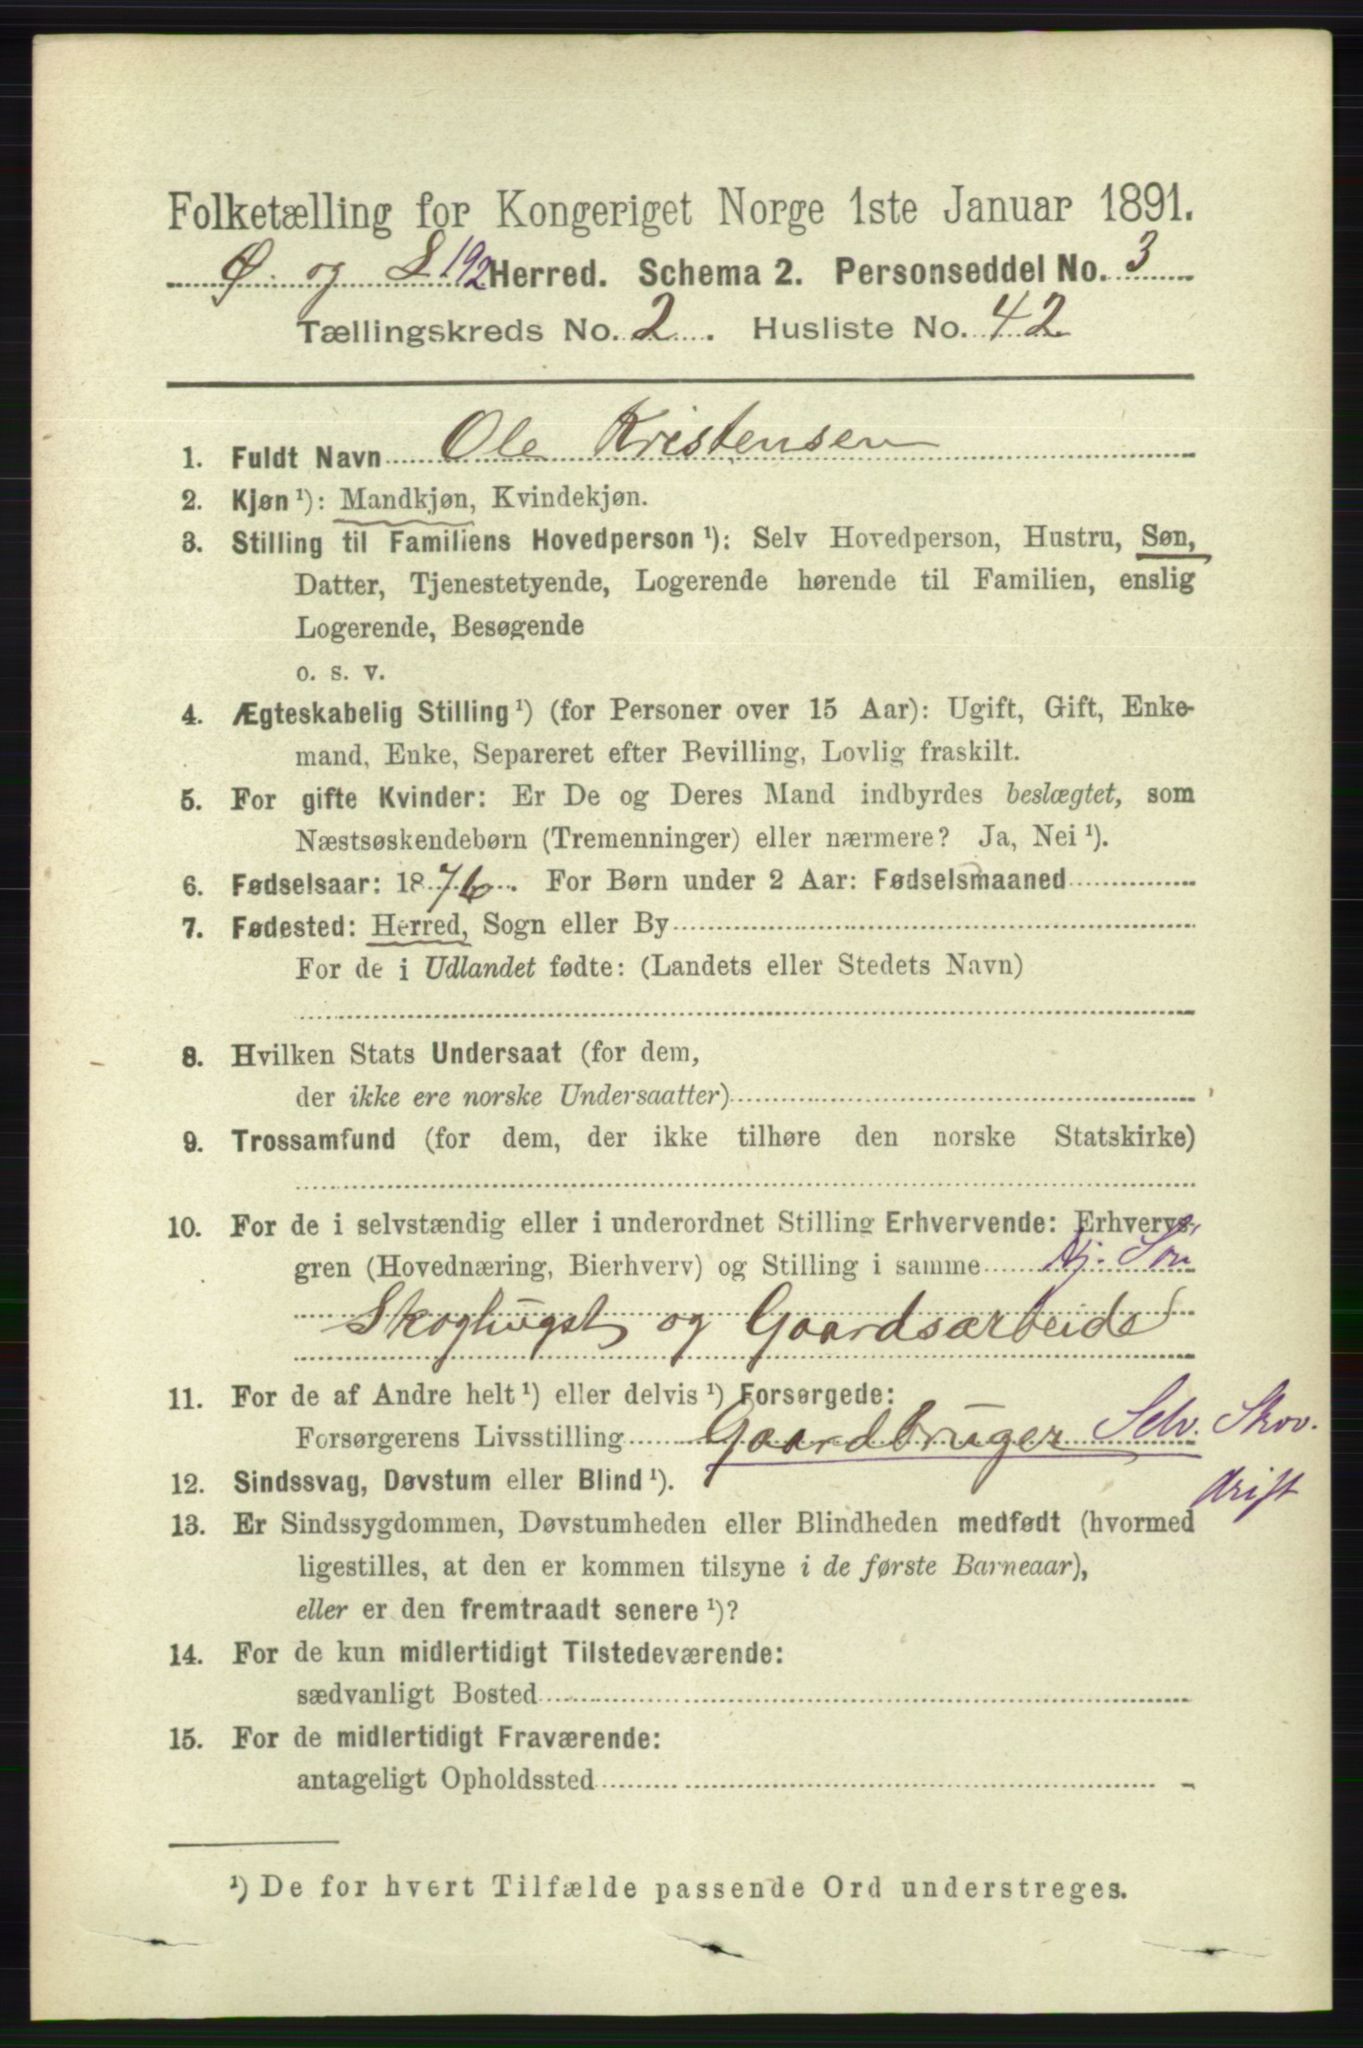 Folketælling for Kongeriget Norge 1ste Januar 1891.
Ø. og L. 192 Herred. Schema 2. Personseddel No. 3
Tællingskreds No. 2. Husliste No. 42
1. Fuldt Navn Ole Kristensen
2. Kjøn ¹): Mandkjøn, Kvindekjøn.
3. Stilling til Familiens Hovedperson ¹): Selv Hovedperson, Hustru, Søn,
Datter, Tjenestetyende, Logerende hørende til Familien, enslig
Logerende, Besøgende
o. s. v.
4. Ægteskabelig Stilling ¹) (for Personer over 15 Aar): Ugift, Gift, Enke-
mand, Enke, Separeret efter Bevilling, Lovlig fraskilt.
5. For gifte Kvinder: Er De og Deres Mand indbyrdes beslægtet, som
Næstsøskendebørn (Tremenninger) eller nærmere? Ja, Nei ¹).
6. Fødselsaar: 1876. For Børn under 2 Aar: Fødselsmaaned
7. Fødested: Herred, Sogn eller By
For de i Udlandet fødte: (Landets eller Stedets Navn)
8. Hvilken Stats Undersaat (for dem,
der ikke ere norske Undersaatter)
9. Trossamfund (for dem, der ikke tilhøre den norske Statskirke)
10. For de i selvstændig eller i underordnet Stilling Erhvervende: Erhvervs-
gren (Hovednæring, Bierhverv) og Stilling i samme Hj. Søn
Skoghugst og Gaardsarbeide
11. For de af Andre helt ¹) eller delvis ¹) Forsørgede:
Forsørgerens Livsstilling Gaardbruger Selv. Skov.
drift
12. Sindssvag, Døvstum eller Blind ¹).
13. Er Sindssygdommen, Døvstumheden eller Blindheden medfødt (hvormed
ligestilles, at den er kommen tilsyne i de første Barneaar),
eller er den fremtraadt senere ¹)?
14. For de kun midlertidigt Tilstedeværende:
sædvanligt Bosted
15. For de midlertidigt Fraværende:
antageligt Opholdssted
¹) De for hvert Tilfælde passende Ord understreges.